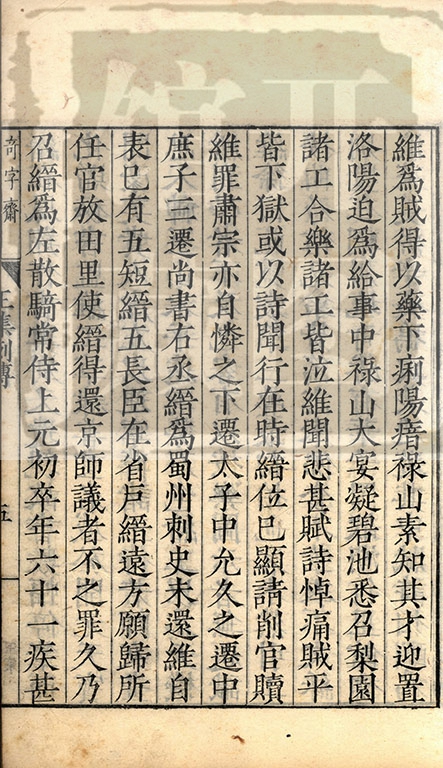 維爲賊得以藥下痢陽瘖祿山素知其才迎置
洛陽迫爲給事中祿山大宴凝碧池悉召梨園
諸工合樂諸工皆泣維聞悲甚賦詩悼痛賊平
皆下獄或以詩聞行在時縉位已顯請削官贖
維罪肅宗亦自憐之下遷太子中允久之遷中
庶子三遷尚書右丞縉爲蜀州刺史未還維自
表已有五短縉五長臣在省戶縉遠方願歸所
任官放田里使縉得還京師議者不之罪久乃
召縉爲左散騎常侍上元初卒年六十一疾甚
奇字齋
王集列傳
五